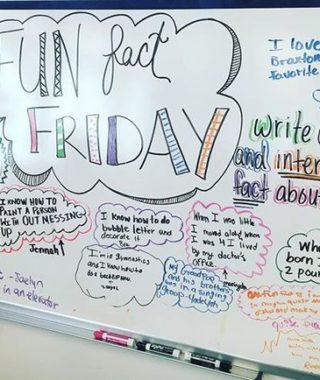 FUN fact
FRIDAY
I love
Braxton
favorite
write
and inter
fact about
I KNOW HOW TO
PAINT A PERSON
WITH OUT MESSING
UP
Jennah
I know how to do
bubble letter and
decorate it
When I was little
I moved alot when
I was 4 I lived
by my doctor's
office.
I m in Gymnastics
and I know how to
do a
My Grandpoo
and his brothers
was in a
singing
group
Whe
born I
2 pou
- Jaelyn
in an elevator